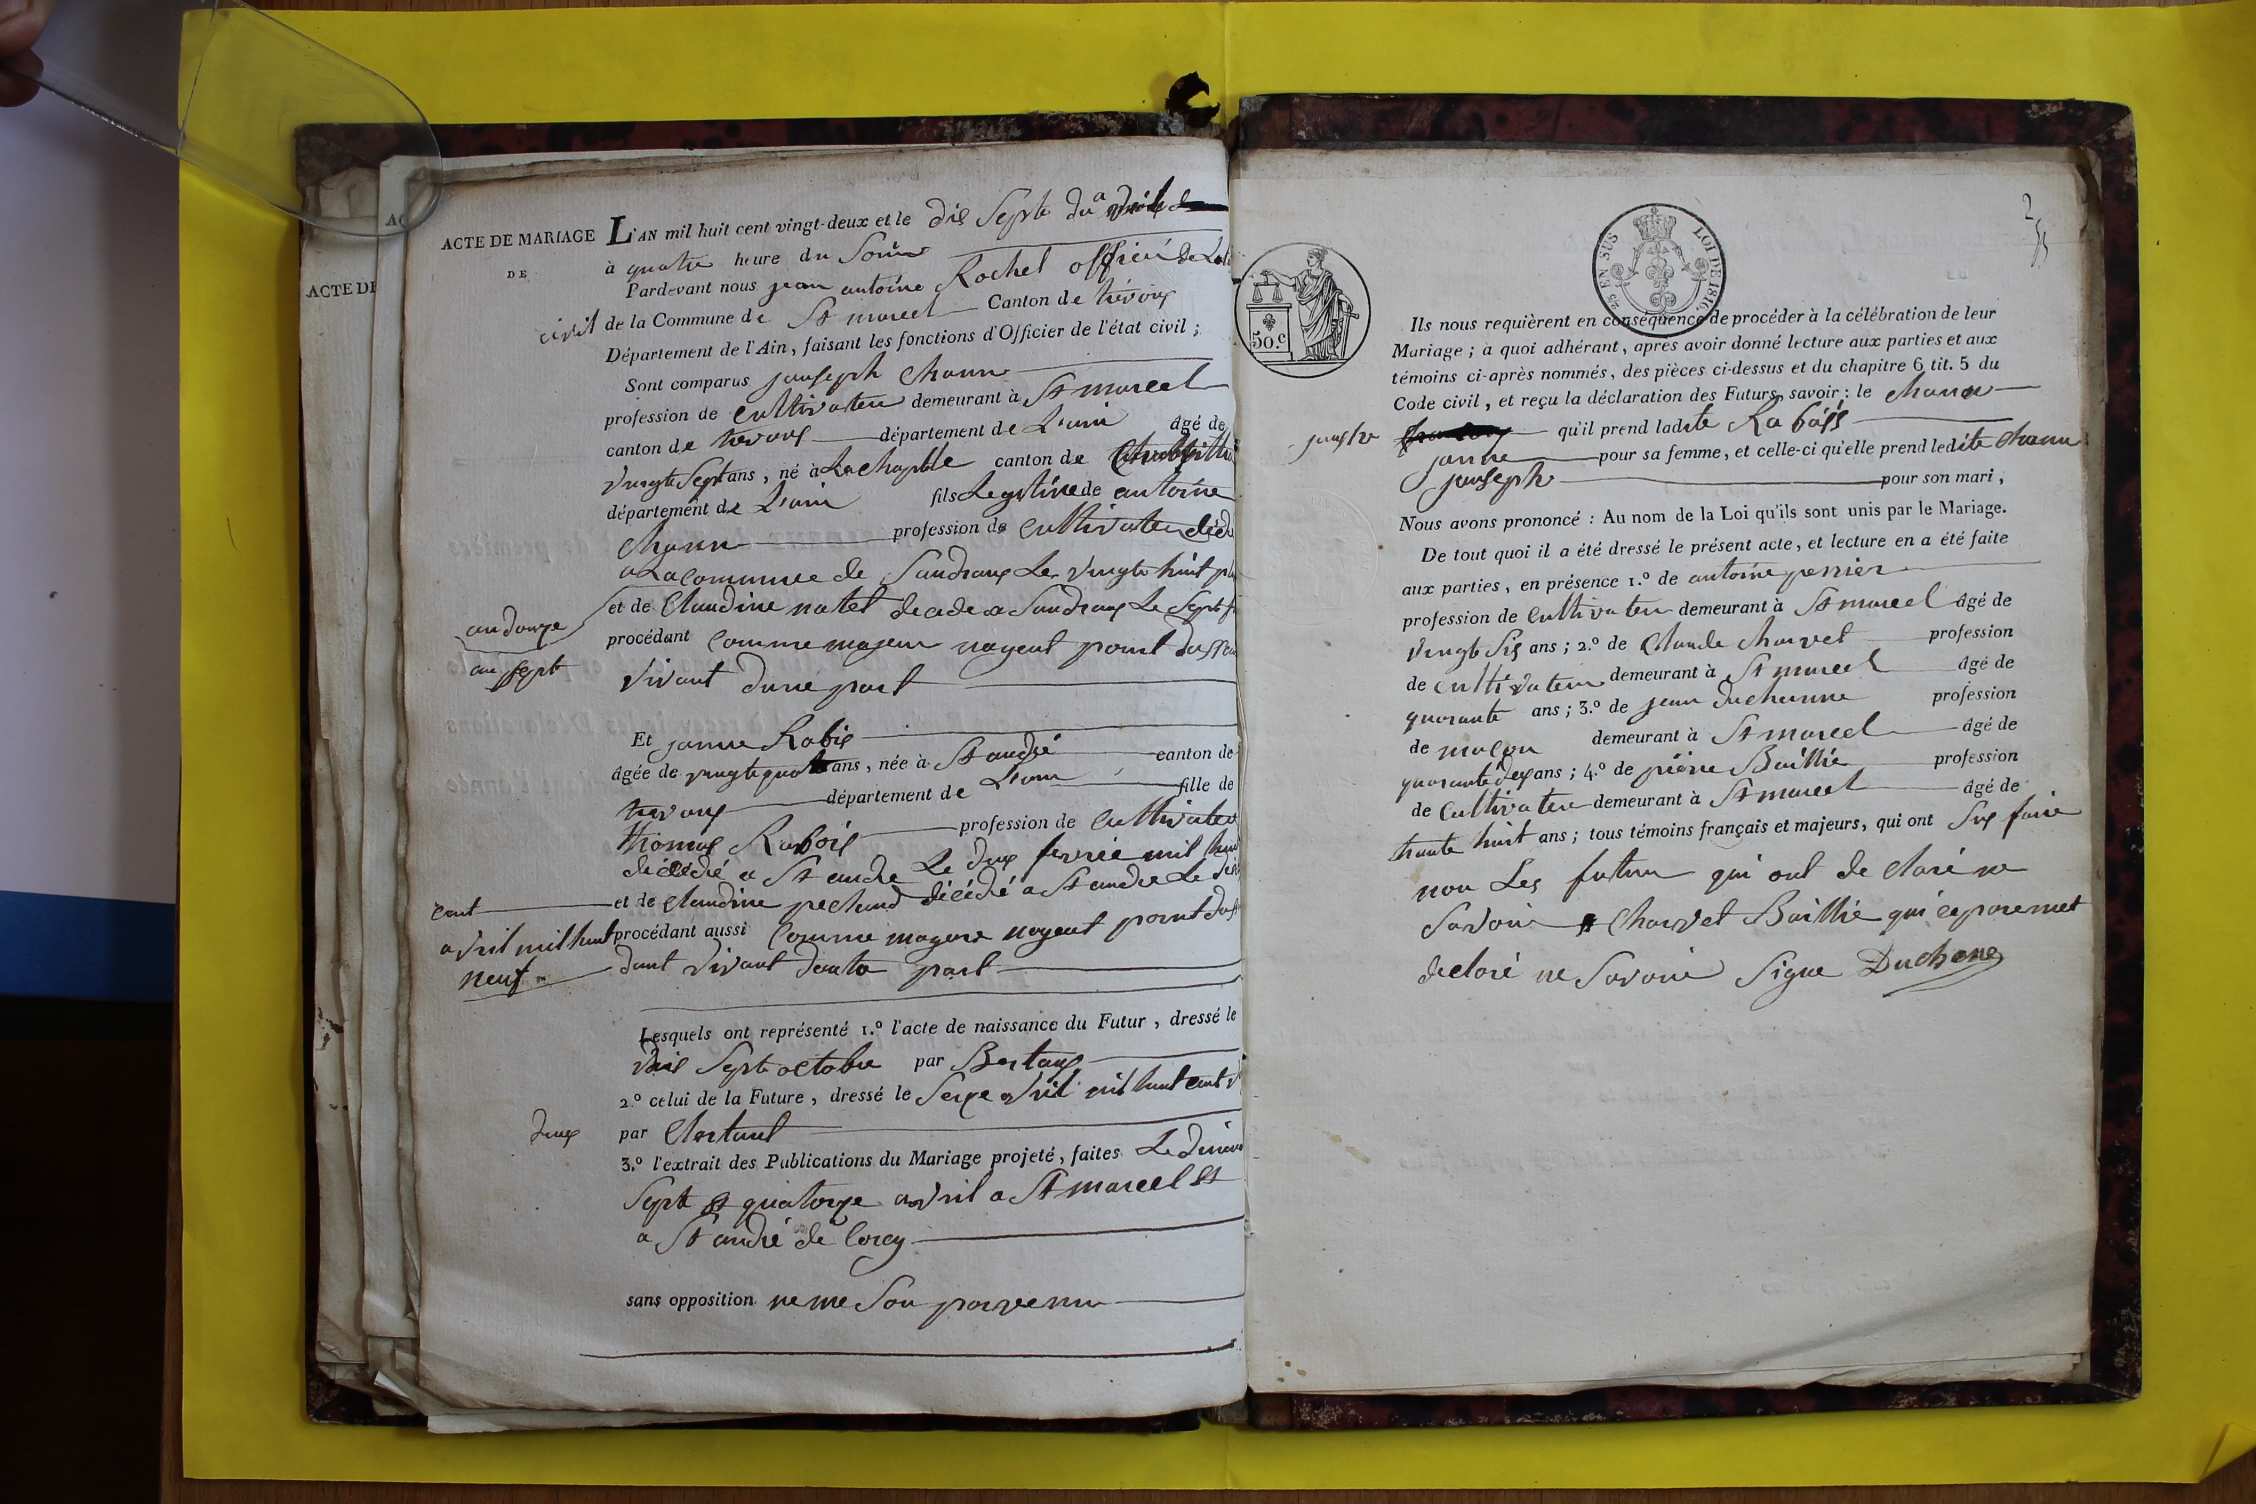 ACTE DE MARIAGE
DE
L'AN mil huit cent vingt-deux et le dis Septe du avril
à quatre heure du Soire
Pardevant nous jean antoine Rochet officié de
civil de la Commune de St marcel Canton de trévoux
Département de l'Ain, faisant les fonctions d'Officier de l'état civil ;
Sont comparus jauseph Chanu
profession de Cultivateur demeurant à St marcel
canton de trevoux département de L'ain âgé de
vingte Sept ans, né à Lachaplle canton de
département de L'ain fils Legitime de antoine
Chanu profession de Cultivateu
a La Commune de Sandrans Le vingte huit
an douze
et de Claudine natel decede a Sandrans Le Septe
an septe
procédant Comme majeur nayent point
vivant dune part
Et janne Rabis
âgée de vingtequatre ans, née à St andré canton de
trevoux département de L'ain fille de
thomas Rabois profession de Cultivateu
décédé a St andre Le dix fevrié mil
cent
et de Claudine pechand décédé a St andre Le
avril mil huit
procédant aussi Comme mageure nayent point
neuf
dant vivant dautre part
Lesquels ont représenté 1.º l'acte de naissance du Futur, dressé le
Septe octobre par Bertaux
2.º celui de la Future, dressé le Seize avril mil huit cent
par
3.º l'extrait des Publications du Mariage projeté, faites Le
Septe et quatorze avril a St marcel et
a St andré de Corcy
sans opposition ne me Son parvenu
ACTE DE
AC
2
25 EN SUS LOI DE 1816.
50.c
Ils nous requièrent en conséquence de procéder à la célébration de leur
Mariage ; à quoi adhérant, après avoir donné lecture aux parties et aux
témoins ci-après nommés, des pièces ci-dessus et du chapitre 6 tit. 5 du
Code civil, et reçu la déclaration des Futurs, savoir : le Chanu
qu'il prend ladite Rabois
janne pour sa femme, et celle-ci qu'elle prend ledite Chanu
jauseph pour son mari,
Nous avons prononcé : Au nom de la Loi qu'ils sont unis par le Mariage.
De tout quoi il a été dressé le présent acte, et lecture en a été faite
aux parties, en présence 1.º de antoine perrier
profession de Cultivateu demeurant à St marcel âgé de
vingt Sis ans ; 2.º de Claude Charvet profession
de Cultivateu demeurant à St marcel âgé de
quarante ans ; 3.º de jean Duchenne profession
de maçon demeurant à St marcel âgé de
quarante deux ans ; 4.º de pierre Baillie profession
de Cultivateu demeurant à St marcel âgé de
trante huit ans ; tous témoins français et majeurs, qui ont Sus faire
non Les futur qui ont de claré ne
Savoir et Charvet Baillie
declaré ne Savoir Signe Duchene